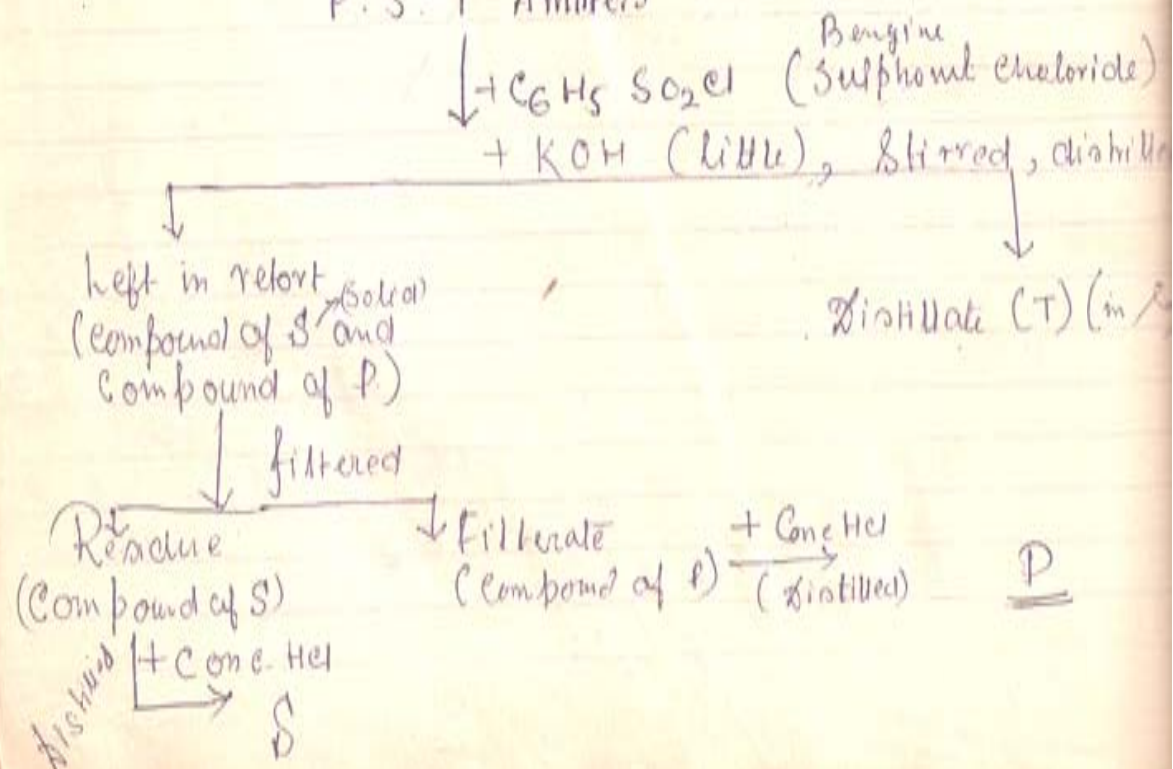 P. S. T Amines
+ C6H5 SO2Cl (Bengine Sulphomt Cheloride)
+ KOH (little), Stirred, distille
Left in retort
(Compound of S (Solid) and
Compound of P.)
Distillate (T) (in
filtered
Residue
(Compound of S)
Filterate
(Compound of P)
+ Conc HCl
(Distilled)
P
Distilled
+ Conc. HCl
S